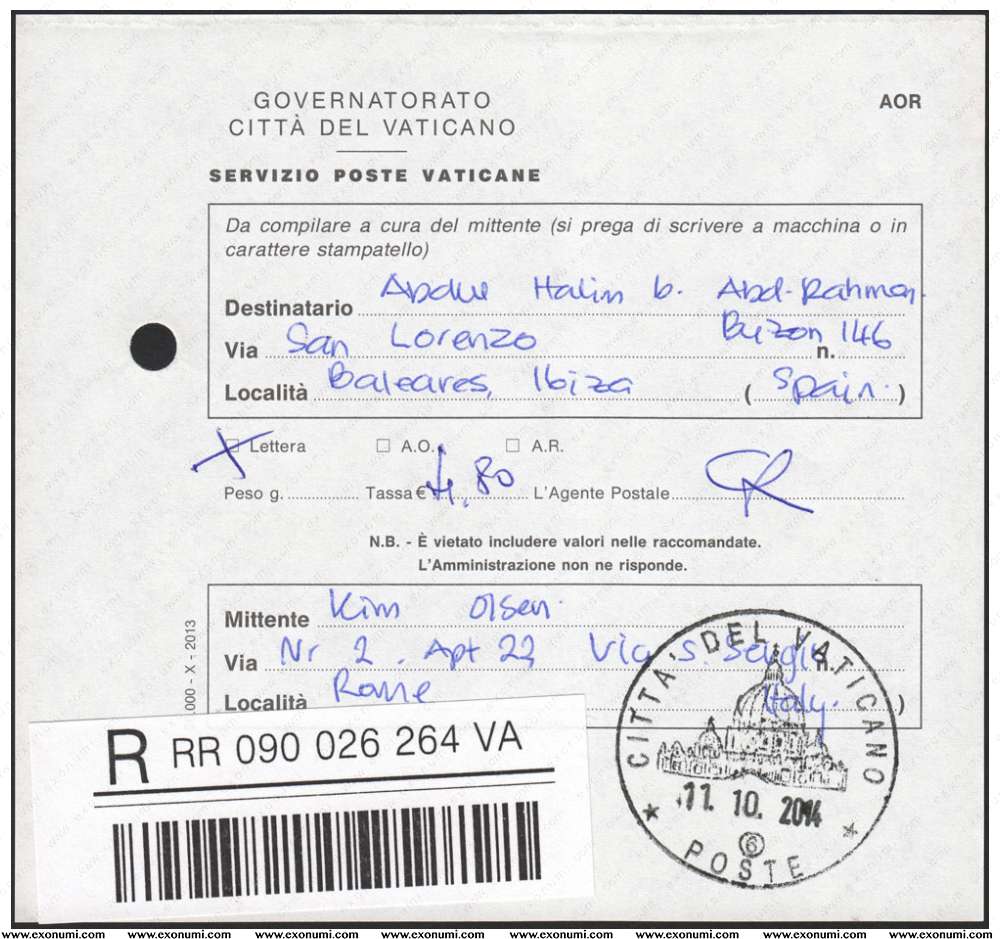 GOVERNATORATO
CITTÀ DEL VATICANO
AOR
SERVIZIO POSTE VATICANE
Da compilare a cura del mittente (si prega di scrivere a macchina o in
carattere stampatello)
Destinatario Abdul Halim b. Abd-Rahman.
Via San Lorenzo Buzon 146 n.
Località Baleares, Ibiza ( Spain. )
Lettera A.O. A.R.
Peso g. Tassa € 4.80 L'Agente Postale
N.B. - È vietato includere valori nelle raccomandate.
L'Amministrazione non ne risponde.
Mittente Kim Olsen.
Via Nr 2. Apt 22 Via S. n.
Località Rome Italy. )
000 - X - 2013
R RR 090 026 264 VA
CITTA' DEL VATICANO
11. 10. 2014
6
POSTE
www.exonumi.com www.exonumi.com www.exonumi.com www.exonumi.com www.exonumi.com www.exonumi.com www.exonumi.com www.exonumi.com